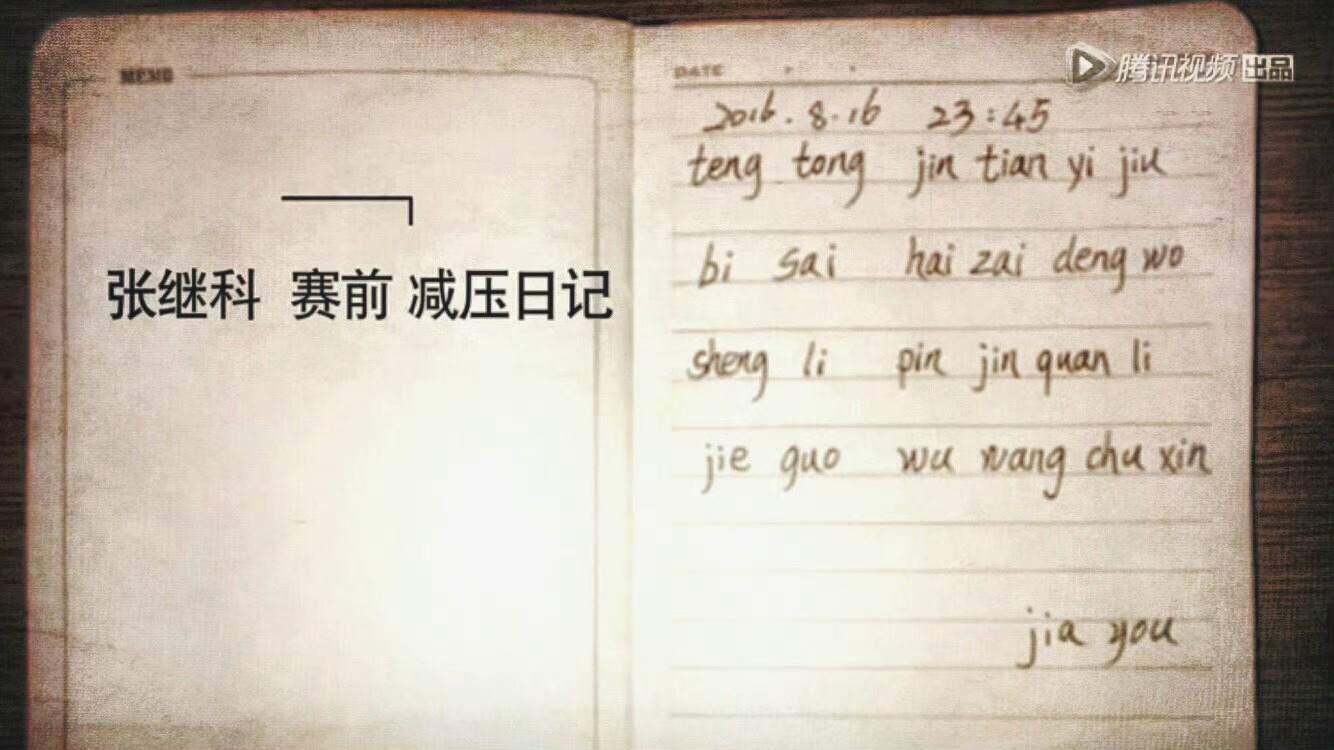 MEMO
张继科 赛前 减压日记
腾讯视频 出品
DATE
2016.8.16 23:45
teng tong jin tian yi jiu
bi sai hai zai deng wo
sheng li pin jin quan li
jie guo wu wang chu xin
jia you